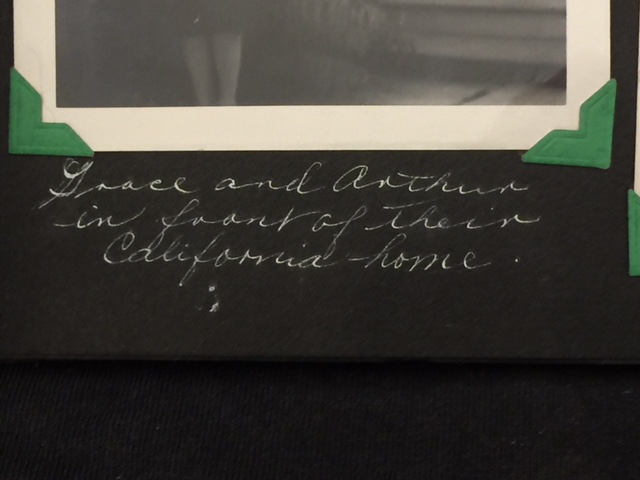 Grace and Arthur
in front of their
California home.